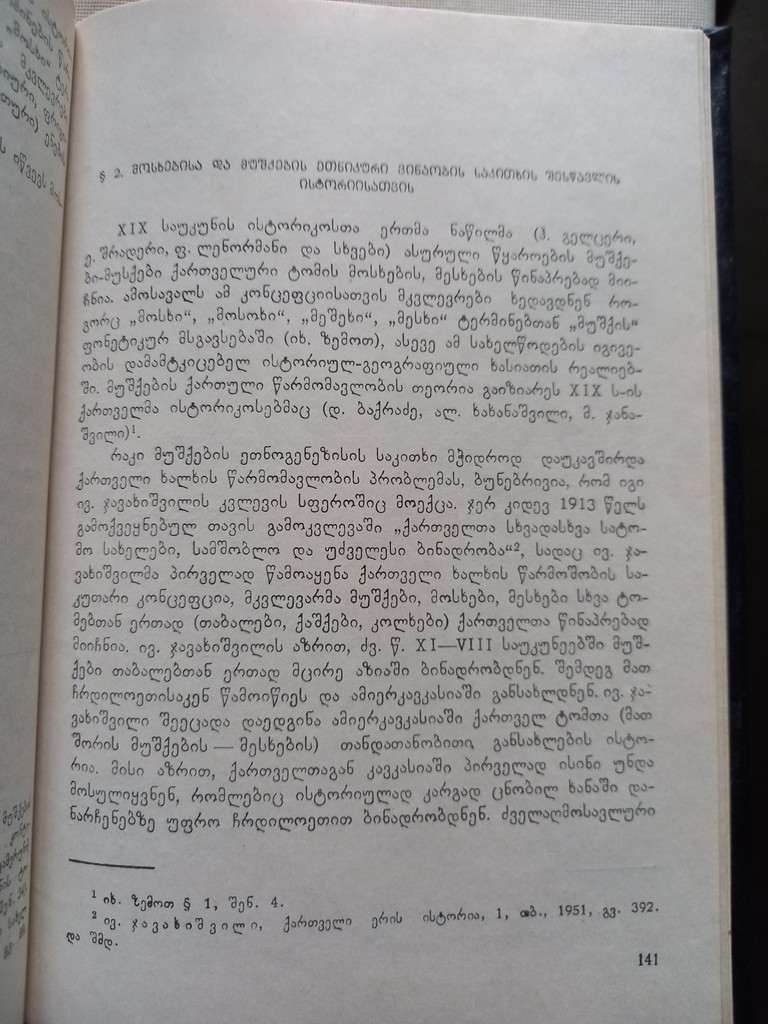 § 2. მოსხებისა და მუშქების ეთნიკური ვინაობის საკითხის შესწავლის
ისტორიისათვის
XIX საუკუნის ისტორიკოსთა ერთმა ნაწილმა (ჰ. გელცერი,
ე. შრადერი, ფ. ლენორმანი და სხვები) ასურული წყაროების მუშქე-
ბი-მუსქები ქართველური ტომის მოსხების, მესხების წინაპრებად მიი-
ჩნია. ამოსავალს ამ კონცეფციისათვის მკვლევრები ხედავდნენ რო-
გორც „მოსხი“, „მოსოხი“, „მეშეხი“, „მესხი“ ტერმინებთან „მუშქის“
ფონეტიკურ მსგავსებაში (იხ. ზემოთ), ასევე ამ სახელწოდების იგივე-
ობის დამამტკიცებელ ისტორიულ-გეოგრაფიული ხასიათის რეალიებ-
ში. მუშქების ქართული წარმომავლობის თეორია გაიზიარეს XIX ს-ის
ქართველმა ისტორიკოსებმაც (დ. ბაქრაძე, ალ. ხახანაშვილი, მ. ჯანა-
შვილი)¹.
რაკი მუშქების ეთნოგენეზისის საკითხი მჭიდროდ დაუკავშირდა
ქართველი ხალხის წარმომავლობის პრობლემას, ბუნებრივია, რომ იგი
ივ. ჯავახიშვილის კვლევის სფეროშიც მოექცა. ჯერ კიდევ 1913 წელს
გამოქვეყნებულ თავის გამოკვლევაში „ქართველთა სხვადასხვა სატო-
მო სახელები, სამშობლო და უძველესი ბინადრობა“², სადაც ივ. ჯა-
ვახიშვილმა პირველად წამოაყენა ქართველი ხალხის წარმოშობის სა-
კუთარი კონცეფცია, მკვლევარმა მუშქები, მოსხები, მესხები სხვა ტო-
მებთან ერთად (თაბალები, ქაშქები, კოლხები) ქართველთა წინაპრებად
მიიჩნია. ივ. ჯავახიშვილის აზრით, ძვ. წ. XI—VIII საუკუნეებში მუშ-
ქები თაბალებთან ერთად მცირე აზიაში ბინადრობდნენ. შემდეგ მათ
ჩრდილოეთისაკენ წამოიწიეს და ამიერკავკასიაში განსახლდნენ. ივ. ჯა-
ვახიშვილი შეეცადა დაედგინა ამიერკავკასიაში ქართველ ტომთა (მათ
შორის მუშქების — მესხების) თანდათანობითი განსახლების ისტო-
რია. მისი აზრით, ქართველთაგან კავკასიაში პირველად ისინი უნდა
მოსულიყვნენ, რომლებიც ისტორიულად კარგად ცნობილ ხანაში და-
ნარჩენებზე უფრო ჩრდილოეთით ბინადრობდნენ. ძველაღმოსავლური
¹ იხ. ზემოთ § 1, შენ. 4.
² ივ. ჯავახიშვილი, ქართველი ერის ისტორია, 1, თბ., 1951, გვ. 392.
და შმდ.
141